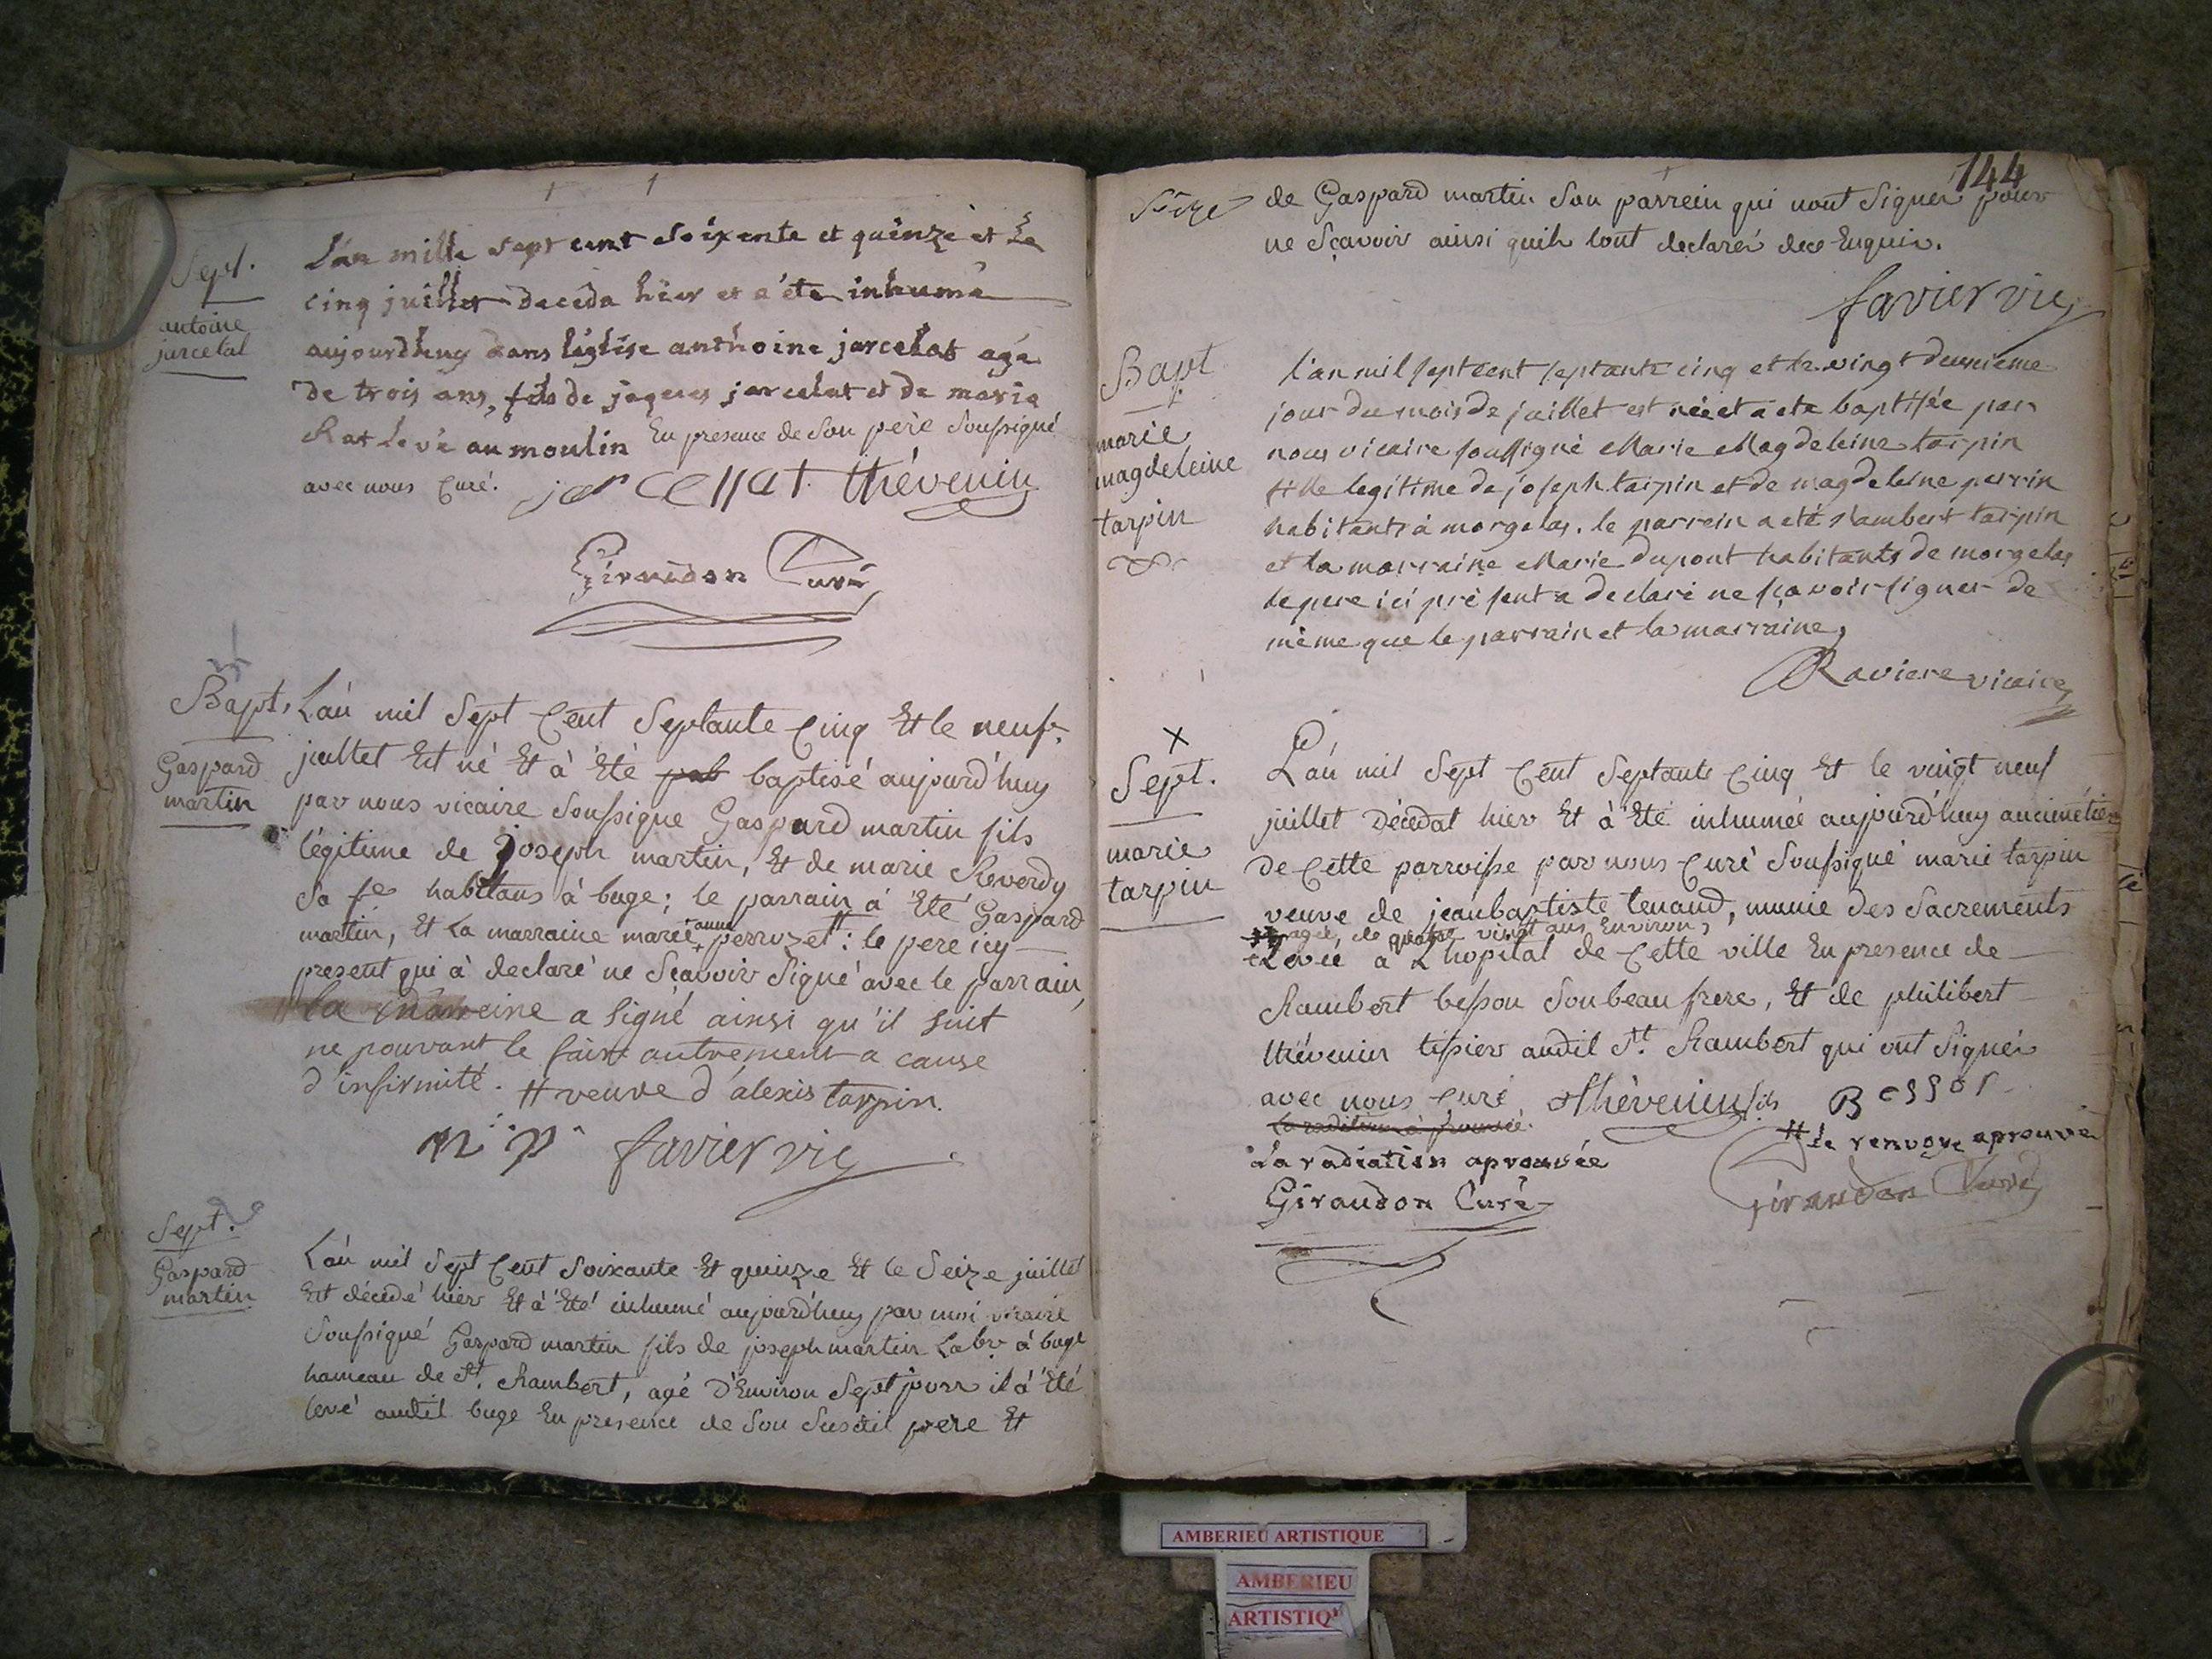 Sept.
antoine
jarcelat
L'an mille sept cent soixente et quinze et le
cinq juillet deceda hier et a éte inhumé
aujourdhuy dans léglise anthoine jarcelat agé
de trois ans, fils de jaques jarcelat et de marie
Rat levé au moulin En presence de Son père Soussigné
avec nous Curé. jarcellat thévenin
Giraudon Curé
Bapt.
Gaspard
martin
L'an mil Sept Cent Septante Cinq Et le neuf
juillet Est né Et à Eté baptisé aujourd'huy
par nous vicaire Soussigné Gaspard martin fils
légitime de joseph martin, Et de marie Reverdy
Sa fe habitans à buge; le parrain à Eté Gaspard
martin, Et La marraine marie anne perrozet #: le pere icy
present qui à declaré ne Sçavoir Signé avec le parrain,
la marreine a signé ainsi qu'il suit
ne pouvant le faire autrement a cause
d'infirmité. # veuve d'alexis tarpin.
m p favier vic
Sept.
Gaspard
martin
L'an mil Sept Cent Soixante Et quinze Et le Seize juillet
Est décédé hier Et à Eté inhumé aujourd'huy par moi vicaire
Soussigné Gaspard martin fils de joseph martin Labr à buge
hameau de St. Rambert, agé D'Environ Sept jours il à Eté
levé audit buge En presence de Son Susdit pere Et
144
de Gaspard martin Son parrein qui nont Signer pour
ne Sçavoir ainsi quils lont declaréz de Enquis.
favier vic
Bapt
marie
magdeleine
tarpin
l'an mil sept cent septante cinq et le vingt deuxieme
jour du mois de juillet est née et a ete baptisée par
nous vicaire soussigné Marie Magdeleine tarpin
fille legitime de joseph tarpin et de magdeleine perrin
habitants à morgelas. le parrein a eté Rambert tarpin
et la marraine Marie dupont habitants de morgelas
le pere ici présent a declaré ne sçavoir signer de
même que le parrain et la marraine,
Raviere vicaire
x
Sept.
marie
tarpin
L'an mil Sept Cent Septante Cinq Et le vingt neuf
juillet Décédat hier Et à Eté inhumée aujourd'huy au cimétier
de Cette parroisse par nous Curé Soussigné marie tarpin
veuve de jeanbaptiste tenand, munie des Sacrements
agée, de quatre vingt ans Environ,
Levée à L'hopital de Cette ville En presence de
Rambert besson Son beau frere, Et de philibert
thévenin tissier audit St. Rambert qui ont Signér
avec nous Curé thévenin fils Besson
# le renvoye aprouvé
La radiation aprouvée
Giraudon Curé
Giraudon Curé
AMBERIEU ARTISTIQUE
AMBERIEU
ARTISTIQ